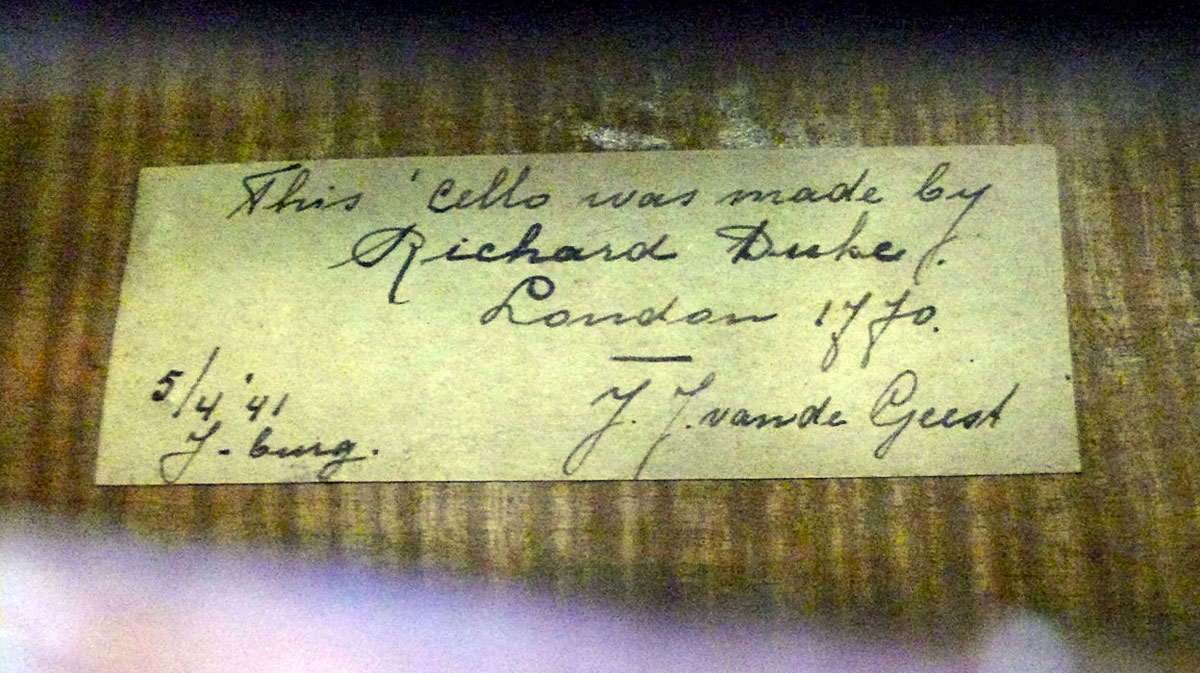 This 'cello was made by
Richard Duke.
London 1770.
5/4 '41
J. J. van de Geest
J-burg.